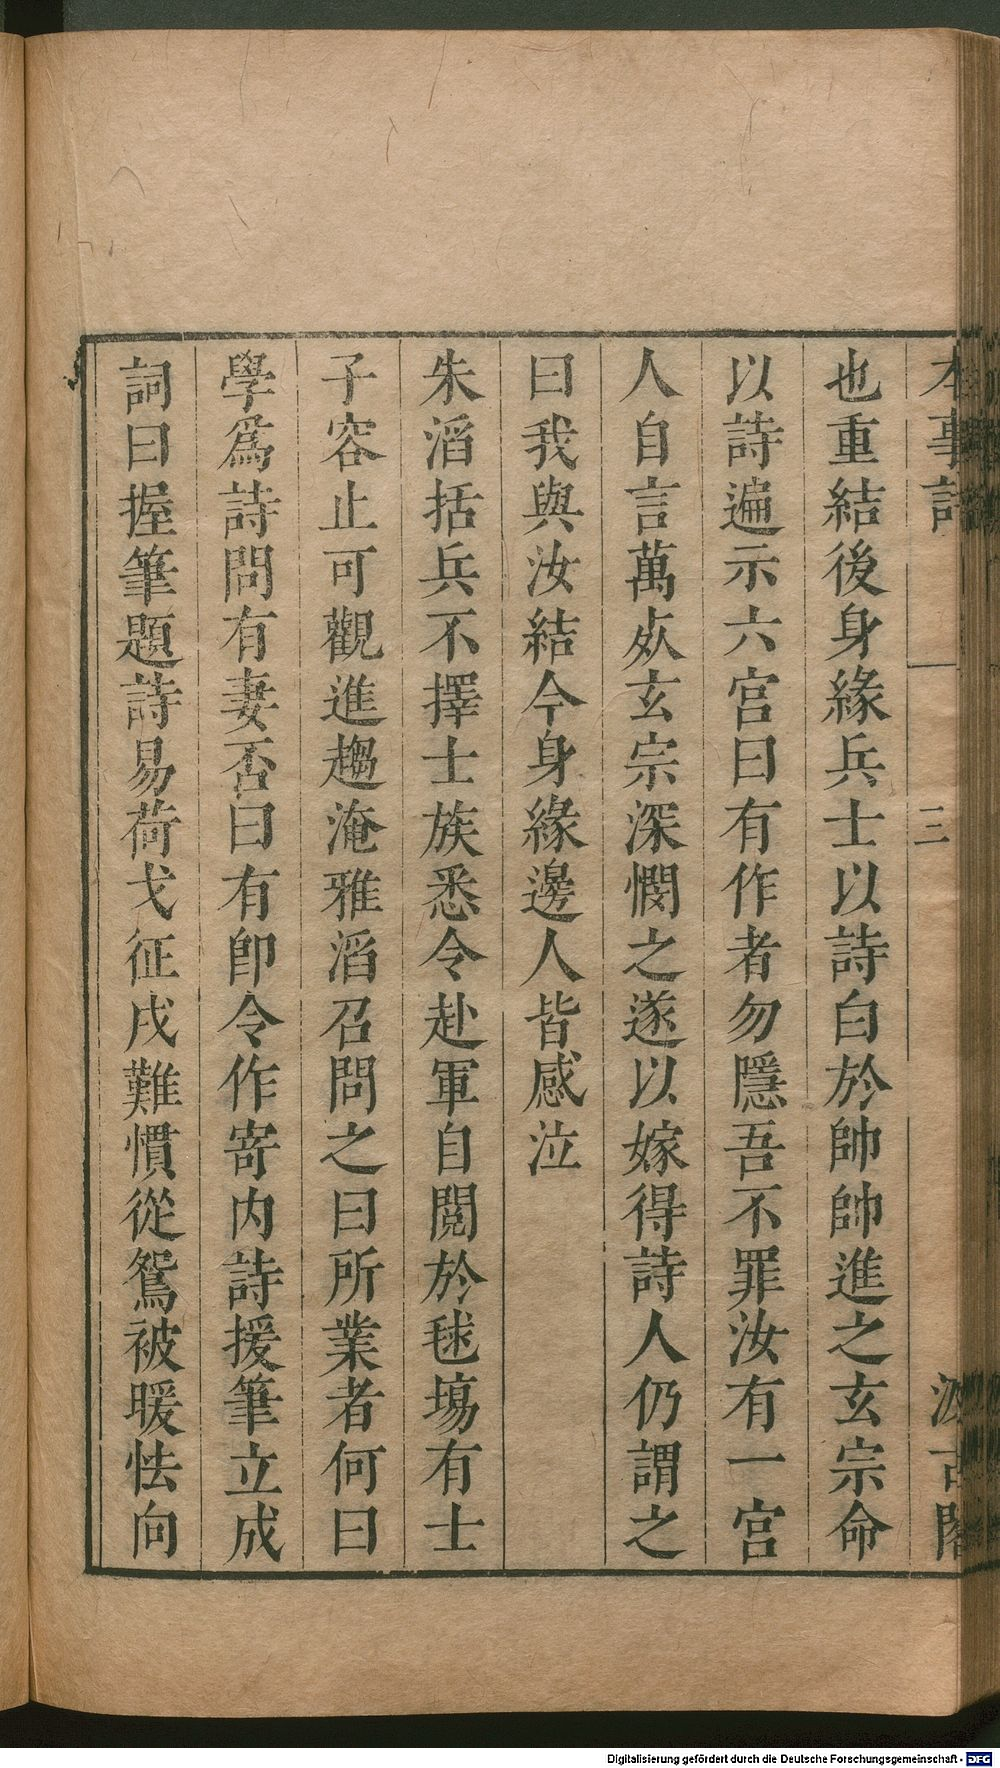 本事詩 三 汲古閣
也重結後身緣兵士以詩白於帥帥進之玄宗命
以詩遍示六宮曰有作者勿隱吾不罪汝有一宮
人自言萬㱔玄宗深憫之遂以嫁得詩人仍謂之
曰我與汝結今身緣邊人皆感泣
朱滔括兵不擇士族悉令赴軍自閱於毬塲有士
子容止可觀進趨淹雅滔召問之曰所業者何曰
學爲詩問有妻否曰有卽令作寄内詩援筆立成
詞曰握筆題詩易荷戈征戍難慣從鴛被暖怯向
Digitalisierung gefördert durch die Deutsche Forschungsgemeinschaft - DFG